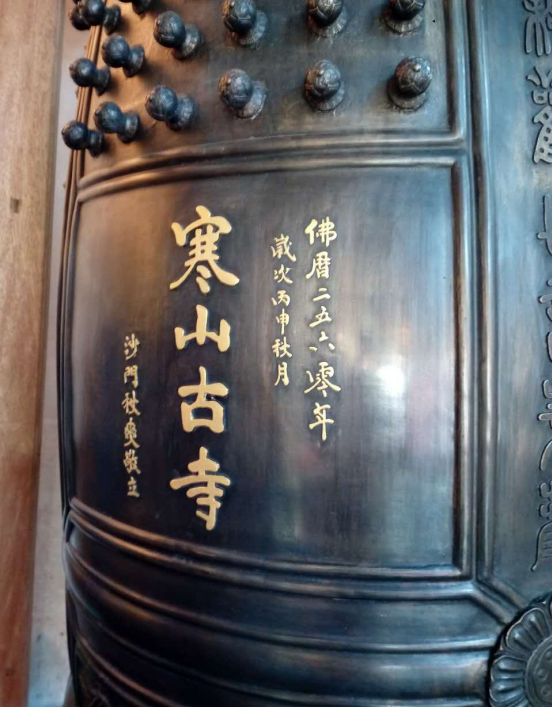 佛曆二五六零年
歲次丙申秋月
寒山古寺
沙門秋爽敬立